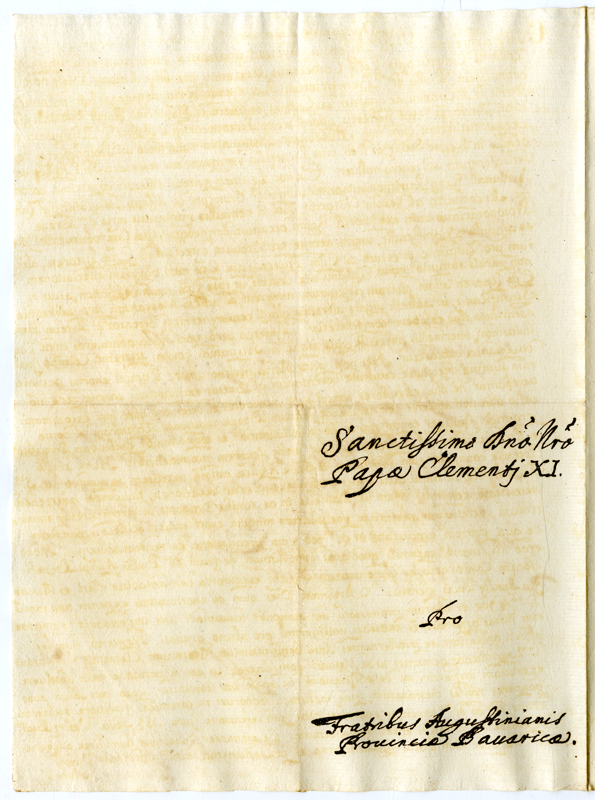 Sanctissimo Dnõ Nrõ
Papæ Clementj XI.
Pro
Fratribus Augustinianis
Prouinciæ Bauaricæ.